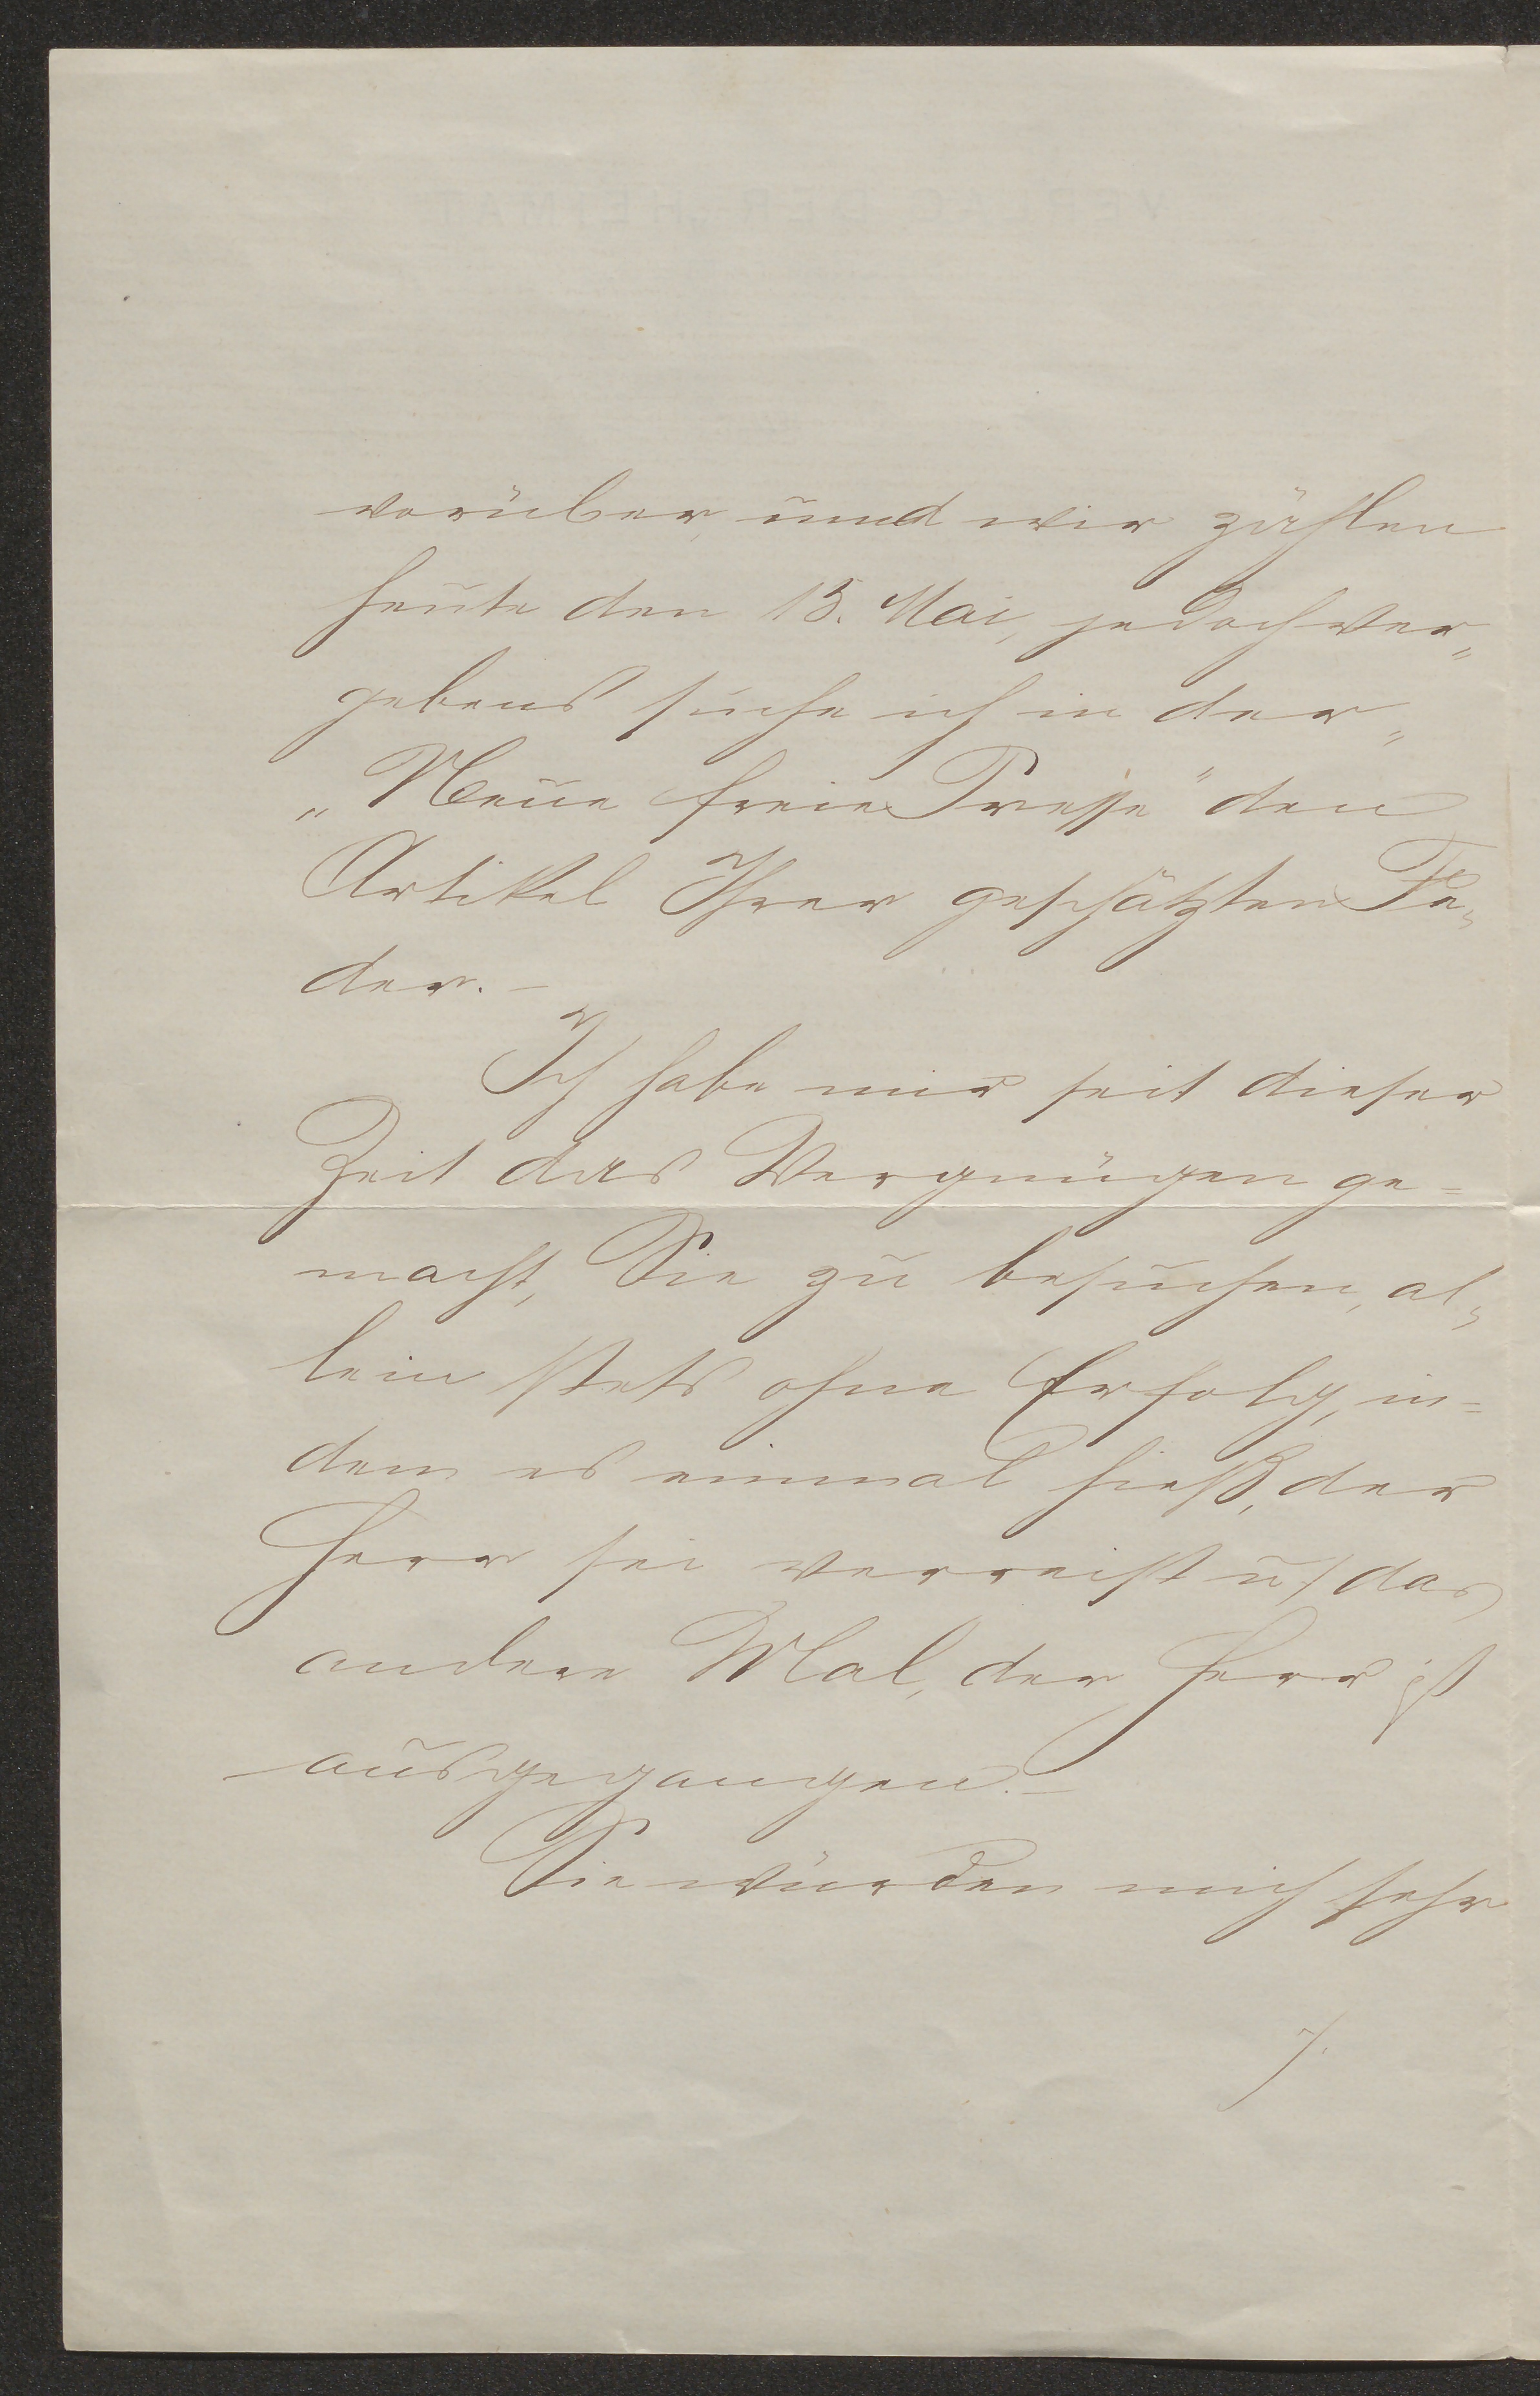 vorüber, und wir zählen
heute den 15. Mai, jedoch ver„
gebens suche ich in der„
„Neue freie Presse" den
Artikel Ihrer geschätzten Fe„
der. –
Ich habe mir seit dieser
Zeit das Vergnügen ge=
macht, Sie zu besuchen, al„
lein stets ohne Erfolg, in=
dem es einmal hieß, der
Herr sei verreist u/ das
andere Mal, der Herr ist
ausgegangen. –
Sie würden mich sehr
/.